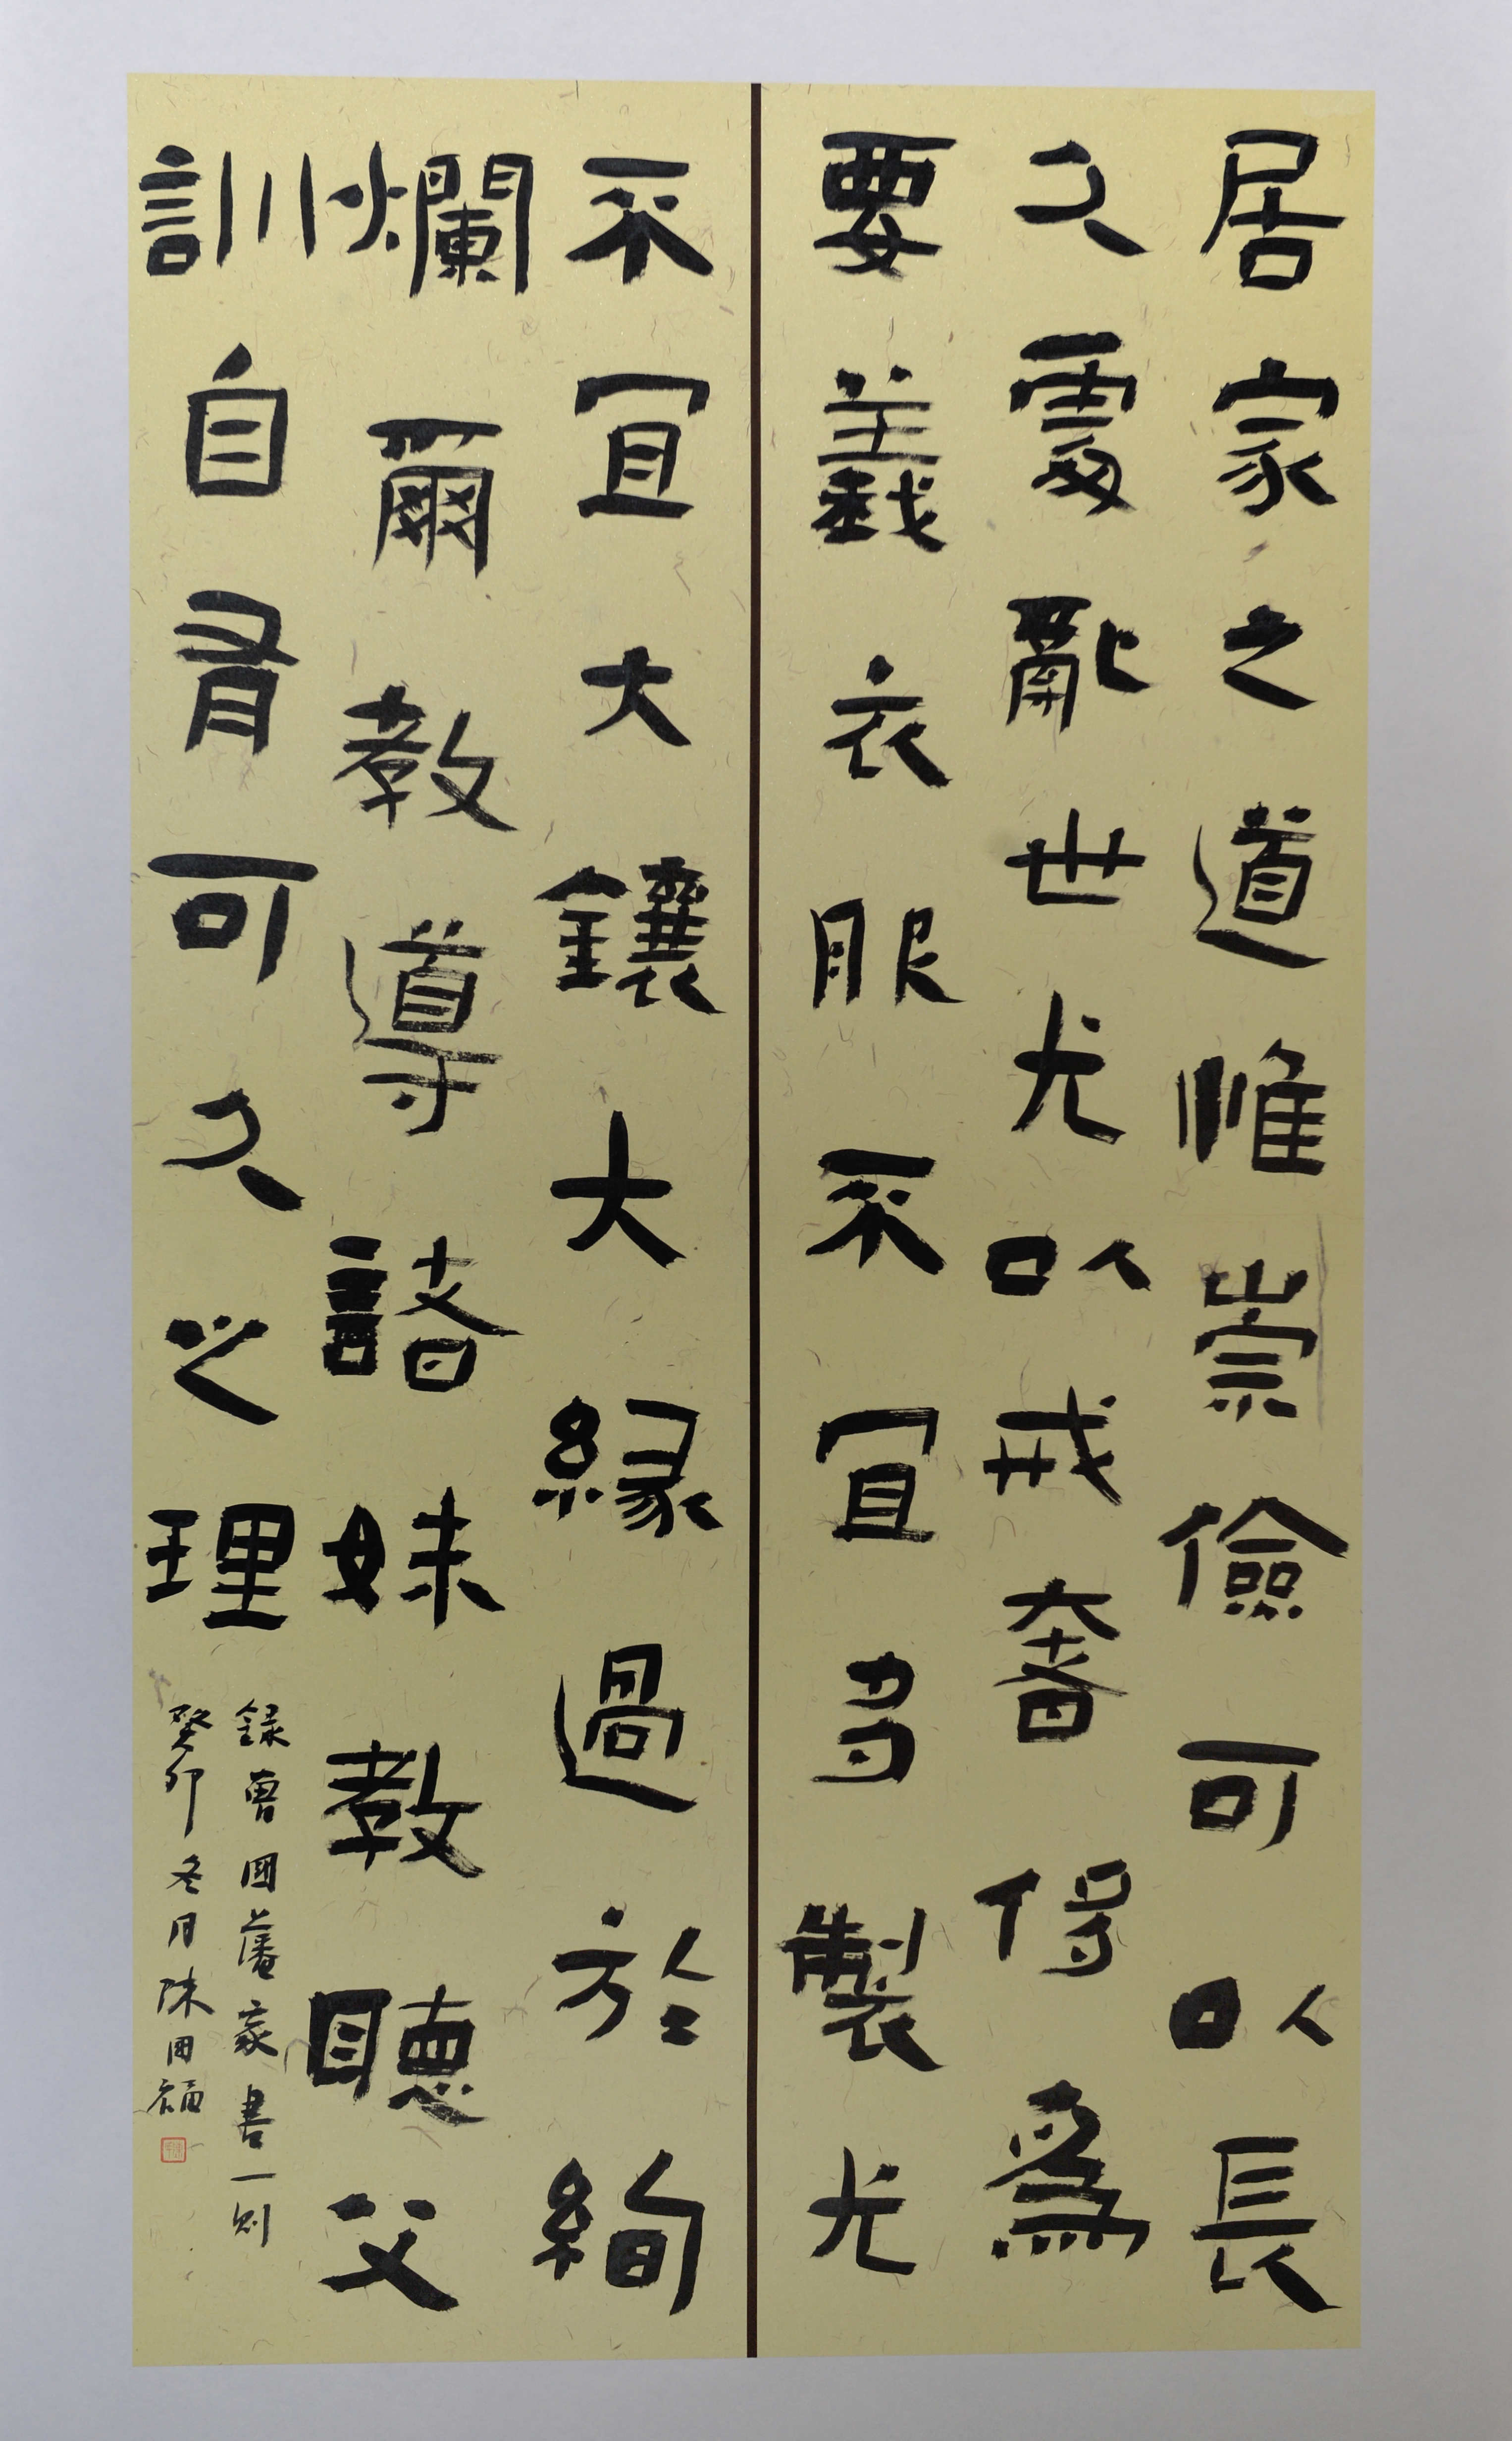 居家之道惟崇儉可以長
久處亂世尤以戒奢侈為
要義衣服不宜多製尤
不宜大鑲大緣過於絢
爛爾教導諸妹教聽父
訓自有可久之理
錄曾國藩家書一則
癸卯冬月陳田福